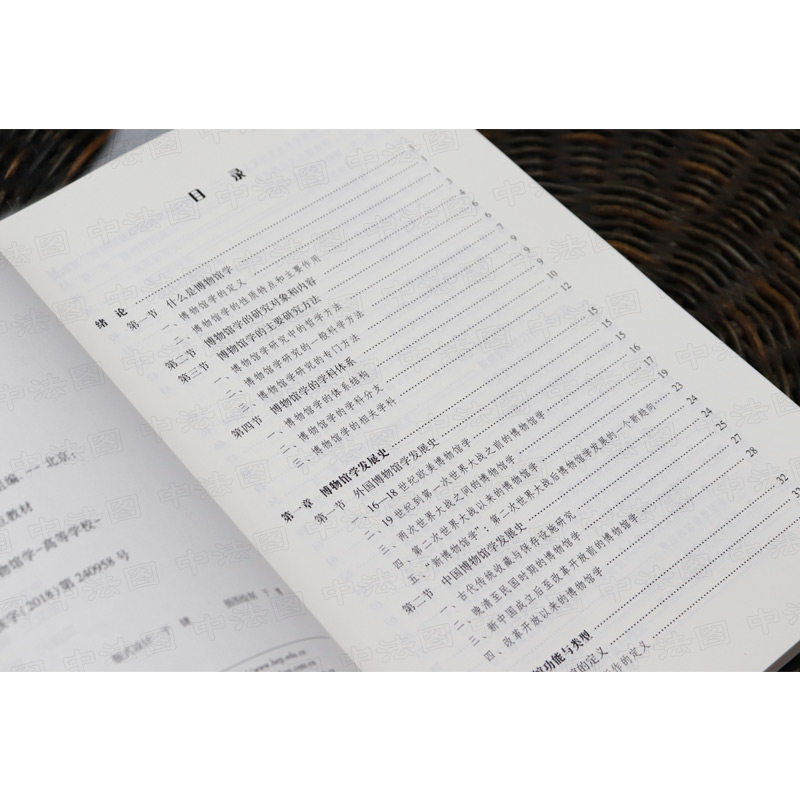 目 录
绪 论
第一节 什么是博物馆学
一、博物馆学的定义
二、博物馆学的性质特点和主要作用
第二节 博物馆学的研究对象和内容
第三节 博物馆学的主要研究方法
一、博物馆学研究中的哲学方法
二、博物馆学研究的一般科学方法
三、博物馆学研究的专门方法
第四节 博物馆学的学科体系
一、博物馆学的体系结构
二、博物馆学的学科分支
三、博物馆学的相关学科
第一章 博物馆学发展史
第一节 外国博物馆学发展史
一、16—18世纪欧美博物馆学
二、19世纪到第一次世界大战之前的博物馆学
三、两次世界大战之间的博物馆学
四、第二次世界大战以来的博物馆学
五、“新博物馆学”：第二次世界大战后博物馆学发展的一个新趋向
第二节 中国博物馆学发展史
一、古代传统收藏与保存设施研究
二、晚清至民国时期的博物馆学
三、新中国成立后至改革开放前的博物馆学
四、改革开放以来的博物馆学
馆功能与类型
馆的定义
作的定义
4
6
7
9
9
10
12
15
15
16
17
19
23
24
24
25
27
28
32
33
组编. -- 北京：
点教材
物馆学-高等学校-
字(2018)第 240958 号
版式设计
中法图